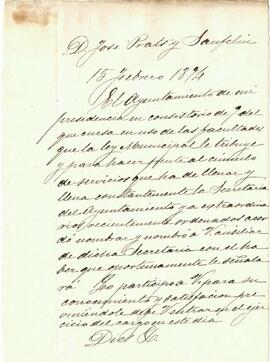 D. José Prats y Sanfeliu
15 Febrero 1874
El Ayuntamiento de mi
presidencia en consistorio de 7 del
que cursa en uso de las facultades
que la ley Municipal le tribuye
y para hacer frente al cumulo
de servicios que ha de llenar y
llena constantemente la Secretaría
del Ayuntamiento y a estraordina
rios, recientemente ordenados acor
dó nombrar y nombró a V. ausiliar
de dicha Secretaria con el ha
ber que oportunamente le señala
rá Lo participo a V. para su
conocimiento y satisfaccion pre
viniéndole debe V. entrar en el ejer
cicio del cargo en este dia
Dios &.